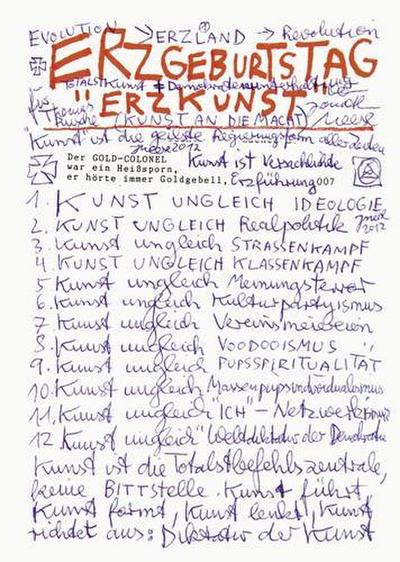 EVOLUTION > ERZLAND → Revolution
ERZGEBURTSTAG
TOTALSTKunst =
"ERZKUNST"
(KUNST AN DIE MACHT) Meese
"Kunst" ist die geilste Regierungsform aller Zeiten
Meese 2012
Der GOLD-COLONEL
war ein Heißsporn,
er hörte immer Goldgebell, Erzführung007
Kunst ist
1. KUNST UNGLEICH IDEOLOGIE
2. KUNST UNGLEICH Realpolitik Meese 2012
3. Kunst ungleich STRASSENKAMPF
4. KUNST UNGLEICH KLASSENKAMPF
5 Kunst ungleich Meinungsterror
6. Kunst ungleich Kulturpartyismus
7 Kunst ungleich Vereinsmeiereien
8. Kunst ungleich VOODOOISMUS
9. Kunst ungleich PUPSSPIRITUALITÄT
10. Kunst ungleich Massenpupsindividualismus
11. Kunst ungleich "ICH" – Netzwerkismus
12 Kunst ungleich "Weltdiktatur der Demokratie
Kunst ist die Totalstbefehlszentrale,
keine BITTSTELLE. Kunst führt,
Kunst formt, Kunst lenkt, Kunst
richtet aus: Diktatur der Kunst